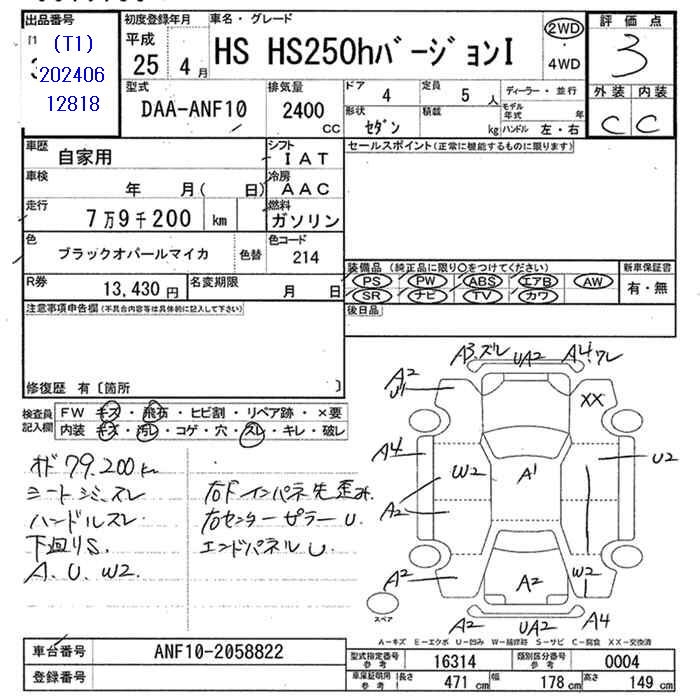 出品番号
(T1)
202406
12818
初度登録年月
平成
25 4月
車名・グレード
HS HS250hバージョンI
2WD
・
4WD
評価点
3
外装 内装
C C
型式
DAA-ANF10
排気量
2400
CC
ドア 4
定員 5人
形状 セダン
積載 kg
ディーラー・並行
モデル年式 年
ハンドル 左・右
車歴 自家用
シフト IAT
車検 年 月( 日)
冷房 AAC
走行 7万9千200 km
燃料 ガソリン
色 ブラックオパールマイカ
色替
色コード 214
R券 13,430円
名変期限 月 日
セールスポイント(正常に機能するものに限ります)
装備品(純正品に限り○をつけてください)
PS PW ABS エアB AW
SR ナビ TV カワ
新車保証書
有・無
後日品
注意事項申告欄(不具合内容等は具体的に記入して下さい)
修復歴 有〔箇所 〕
検査員記入欄
FW キズ・飛石・ヒビ割・リペア跡・×要
内装 キズ・汚レ・コゲ・穴・スレ・キレ・破レ
79,200km
シートシミ、スレ
ハンドルスレ
下回りS.
A、U、W2
右Fインパネ先歪み
右センターピラーU.
エンドパネルU
A3.ズレ UA2 A4.ワレ
A2
U1
XX
A4
W2
A1
U2
A2
A2
A2
W2
A2 UA2 A4
スペア
A-キズ E-エクボ U-凹み W-補修跡 S-サビ C-腐食 XX-交換済
車台番号 ANF10-2058822
登録番号
型式指定番号 参考 16314
類別区分番号 参考 0004
車庫証明用 参考
長さ 471 cm
幅 178 cm
高さ 149 cm